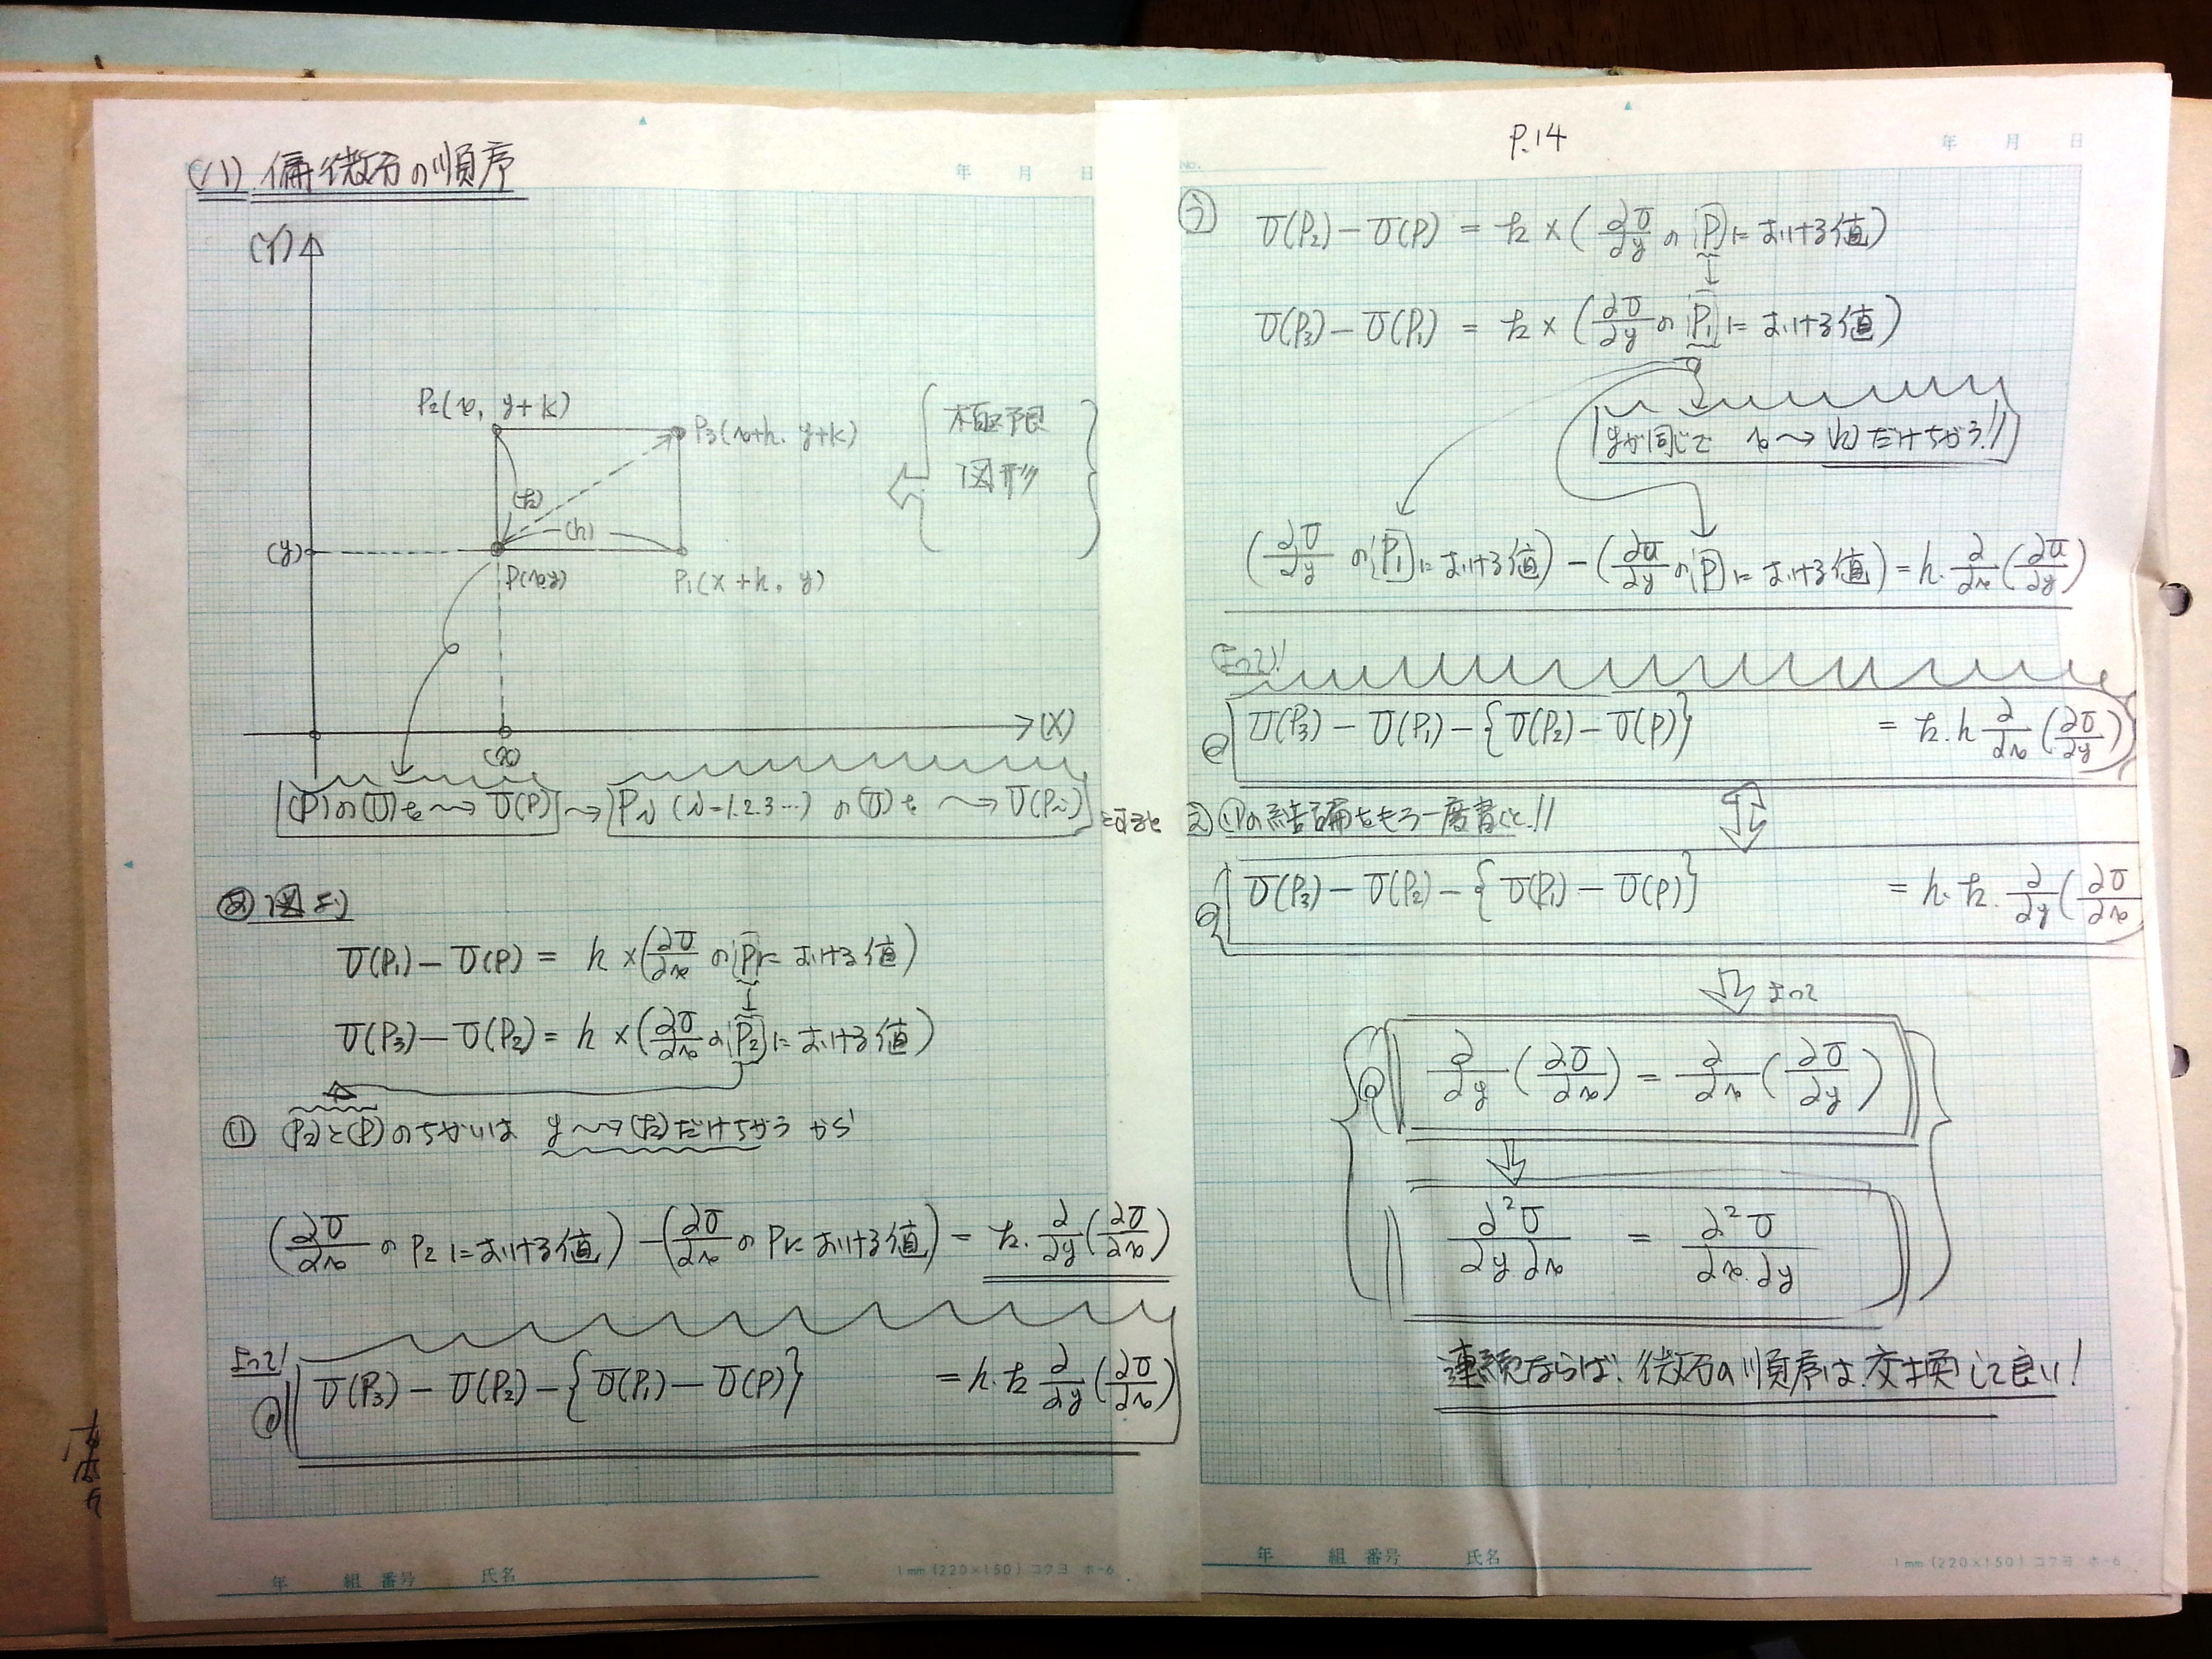 (ハ) 偏微分の順序
(Y)
P2(x, y+k)
P3(x+h, y+k)
極限
図形
(k)
(h)
(y)
P(x,y)
P1(x+h, y)
(X)
(x)
(P)の(U)を〜→ U(P) 〜→ Pi (i=1.2.3…) の(U)を 〜→ U(Pi) とすると
図より
U(P1) − U(P) = h ×(∂U/∂x の P に おける値)
U(P3) − U(P2) = h ×(∂U/∂x の P2 に おける値)
(P2)と(P)のちがいは y〜→(k)だけちがうから
(∂U/∂x の P2 における値) − (∂U/∂x の P に おける値) = k・∂/∂y(∂U/∂x)
よって!
U(P3) − U(P2) − {U(P1) − U(P)} = h・k ∂/∂y(∂U/∂x)
年 組 番号 氏名
1mm (220×150) コクヨ ホ-6
P.14
年 月 日
No.
う U(P2) − U(P) = k ×(∂U/∂y の P に おける値)
U(P3) − U(P1) = k ×(∂U/∂y の P1 に おける値)
yが同じで x〜→(h)だけちがう!!
(∂U/∂y の P1 に おける値) − (∂U/∂y の P に おける値) = h・∂/∂x(∂U/∂y)
よって!
U(P3) − U(P1) − {U(P2) − U(P)} = k・h ∂/∂x(∂U/∂y)
え (1)の結論をもう一度書くと!!
U(P3) − U(P2) − {U(P1) − U(P)} = h・k・∂/∂y(∂U/∂x
よって
∂/∂y(∂U/∂x) = ∂/∂x(∂U/∂y)
∂²U/∂y・∂x = ∂²U/∂x・∂y
連続ならば、微分の順序は、交換して良い!
年 組 番号 氏名
1mm (220×150) コクヨ ホ-6